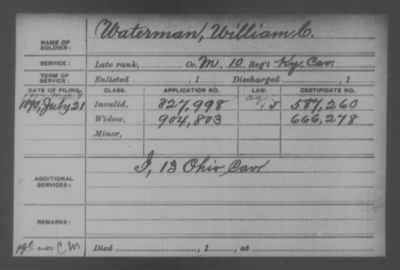 NAME OF SOLDIER: Waterman, William C.
SERVICE: Late rank, Co. M, 10 Reg't Ky. Cav.
TERM OF SERVICE: Enlisted , 1 Discharged , 1
DATE OF FILING. CLASS. APPLICATION NO. LAW. CERTIFICATE NO.
1890, July 21 Invalid, 827,998 587,260
Widow, 904,803 666,278
Minor,
ADDITIONAL SERVICES: I, 13 Ohio Cav
REMARKS:
C M Died , 1 , at